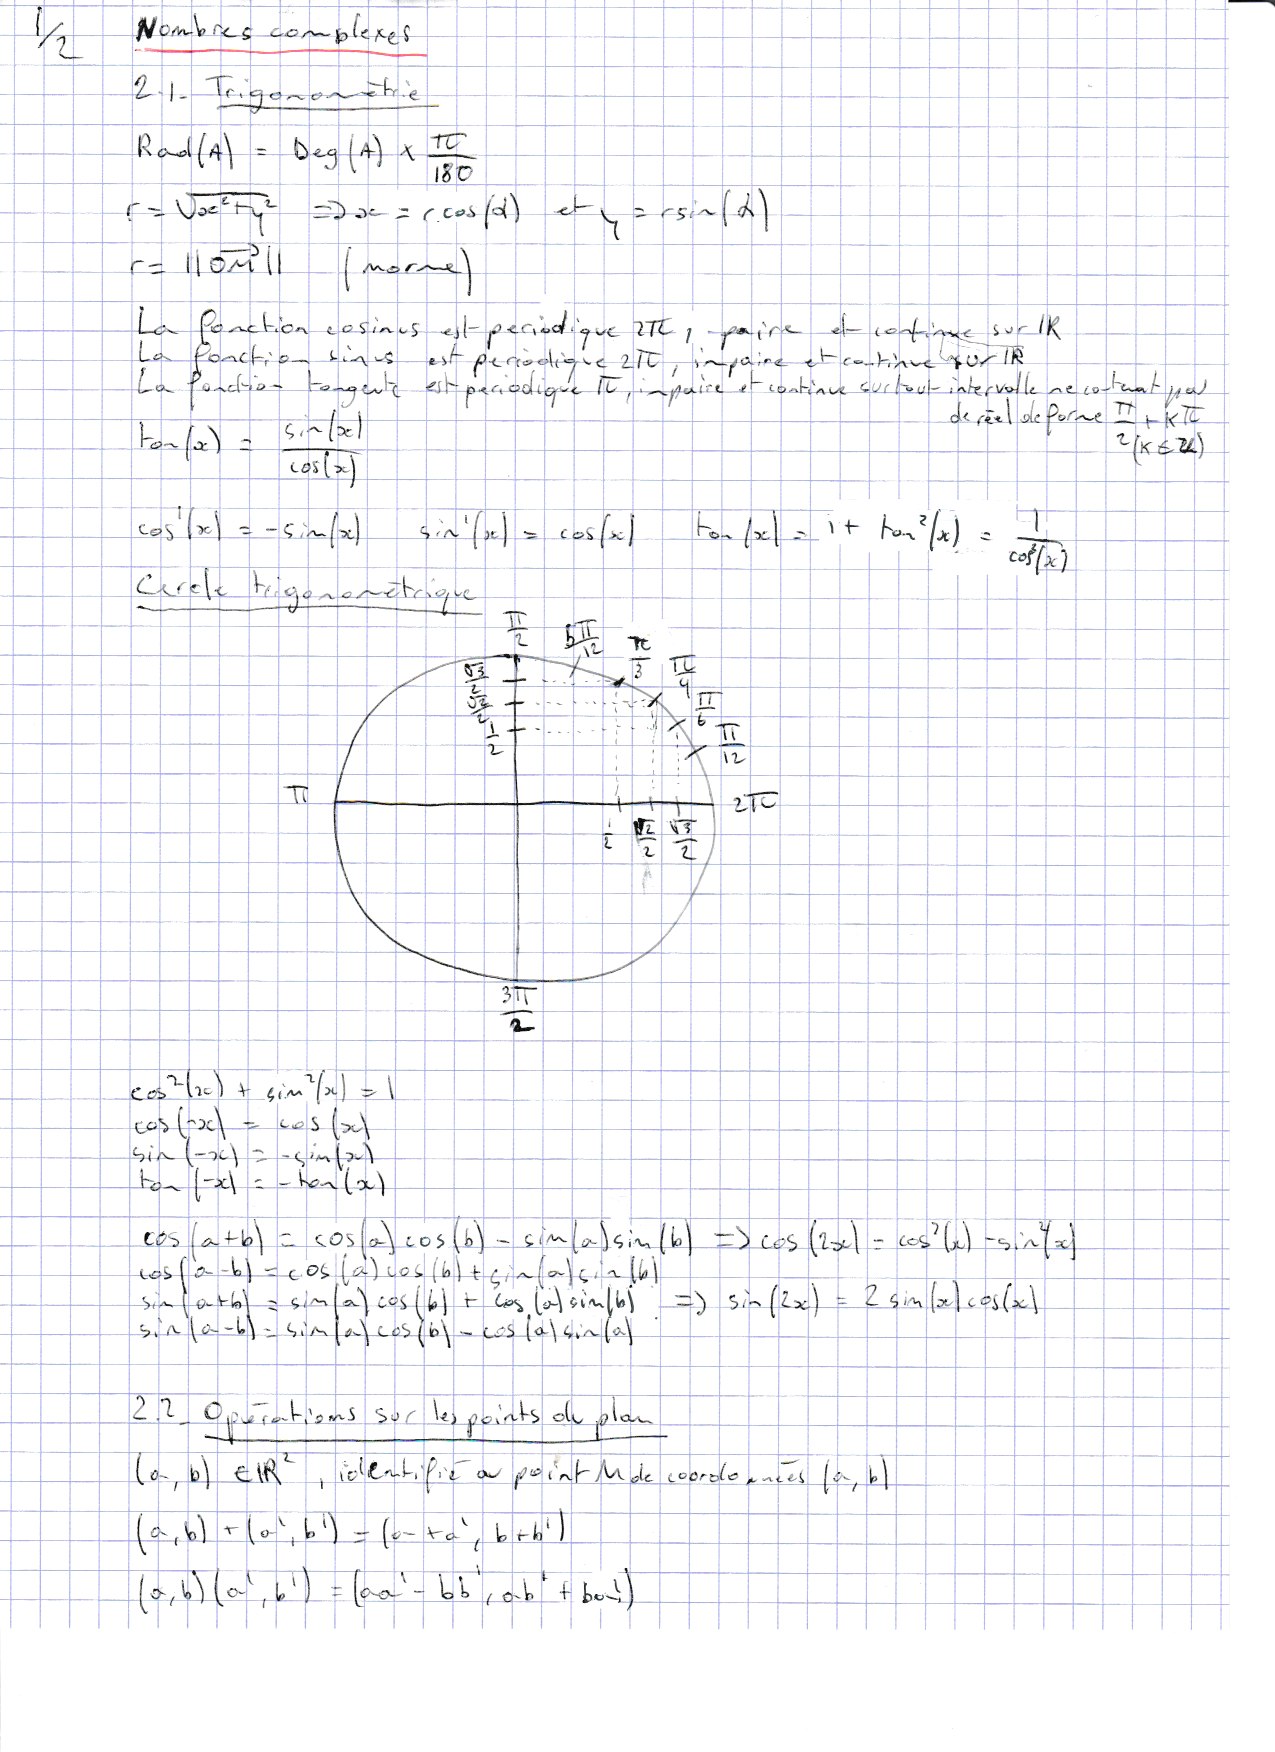 1/2
Nombres complexes
2.1- Trigonométrie
Rad(A) = Deg(A) × π/180
r = √(x²+y²) => x = r.cos(α) et y = rsin(α)
r = ||OM→|| (norme)
La fonction cosinus est periodique 2π, paire et continue sur IR
La fonction sinus est periodique 2π, impaire et continue sur IR
La fonction tangente est periodique π, impaire et continue sur tout intervalle ne contenant pas
de réel de forme π/2 + Kπ
(K ∈ ℤ)
tan(x) = sin(x)/cos(x)
cos'(x) = -sin(x) sin'(x) = cos(x) tan(x) = 1 + tan²(x) = 1/cos²(x)
Cercle trigonométrique
π/2 5π/12 π/3 π/4 π/6 π/12
√3/2
√2/2
1/2
π 2π
1/2 √2/2 √3/2
3π/2
cos²(x) + sin²(x) = 1
cos(-x) = cos(x)
sin(-x) = -sin(x)
tan(-x) = -tan(x)
cos(a+b) = cos(a)cos(b) - sin(a)sin(b) => cos(2x) = cos²(x) - sin²(x)
cos(a-b) = cos(a)cos(b) + sin(a)sin(b)
sin(a+b) = sin(a)cos(b) + cos(a)sin(b) => sin(2x) = 2sin(x)cos(x)
sin(a-b) = sin(a)cos(b) - cos(a)sin(a)
2.2- Opérations sur les points du plan
(a,b) ∈ IR², identifié au point M de coordonnées (a,b)
(a,b) + (a',b') = (a+a', b+b')
(a,b)(a',b') = (aa' - bb', ab' + ba')